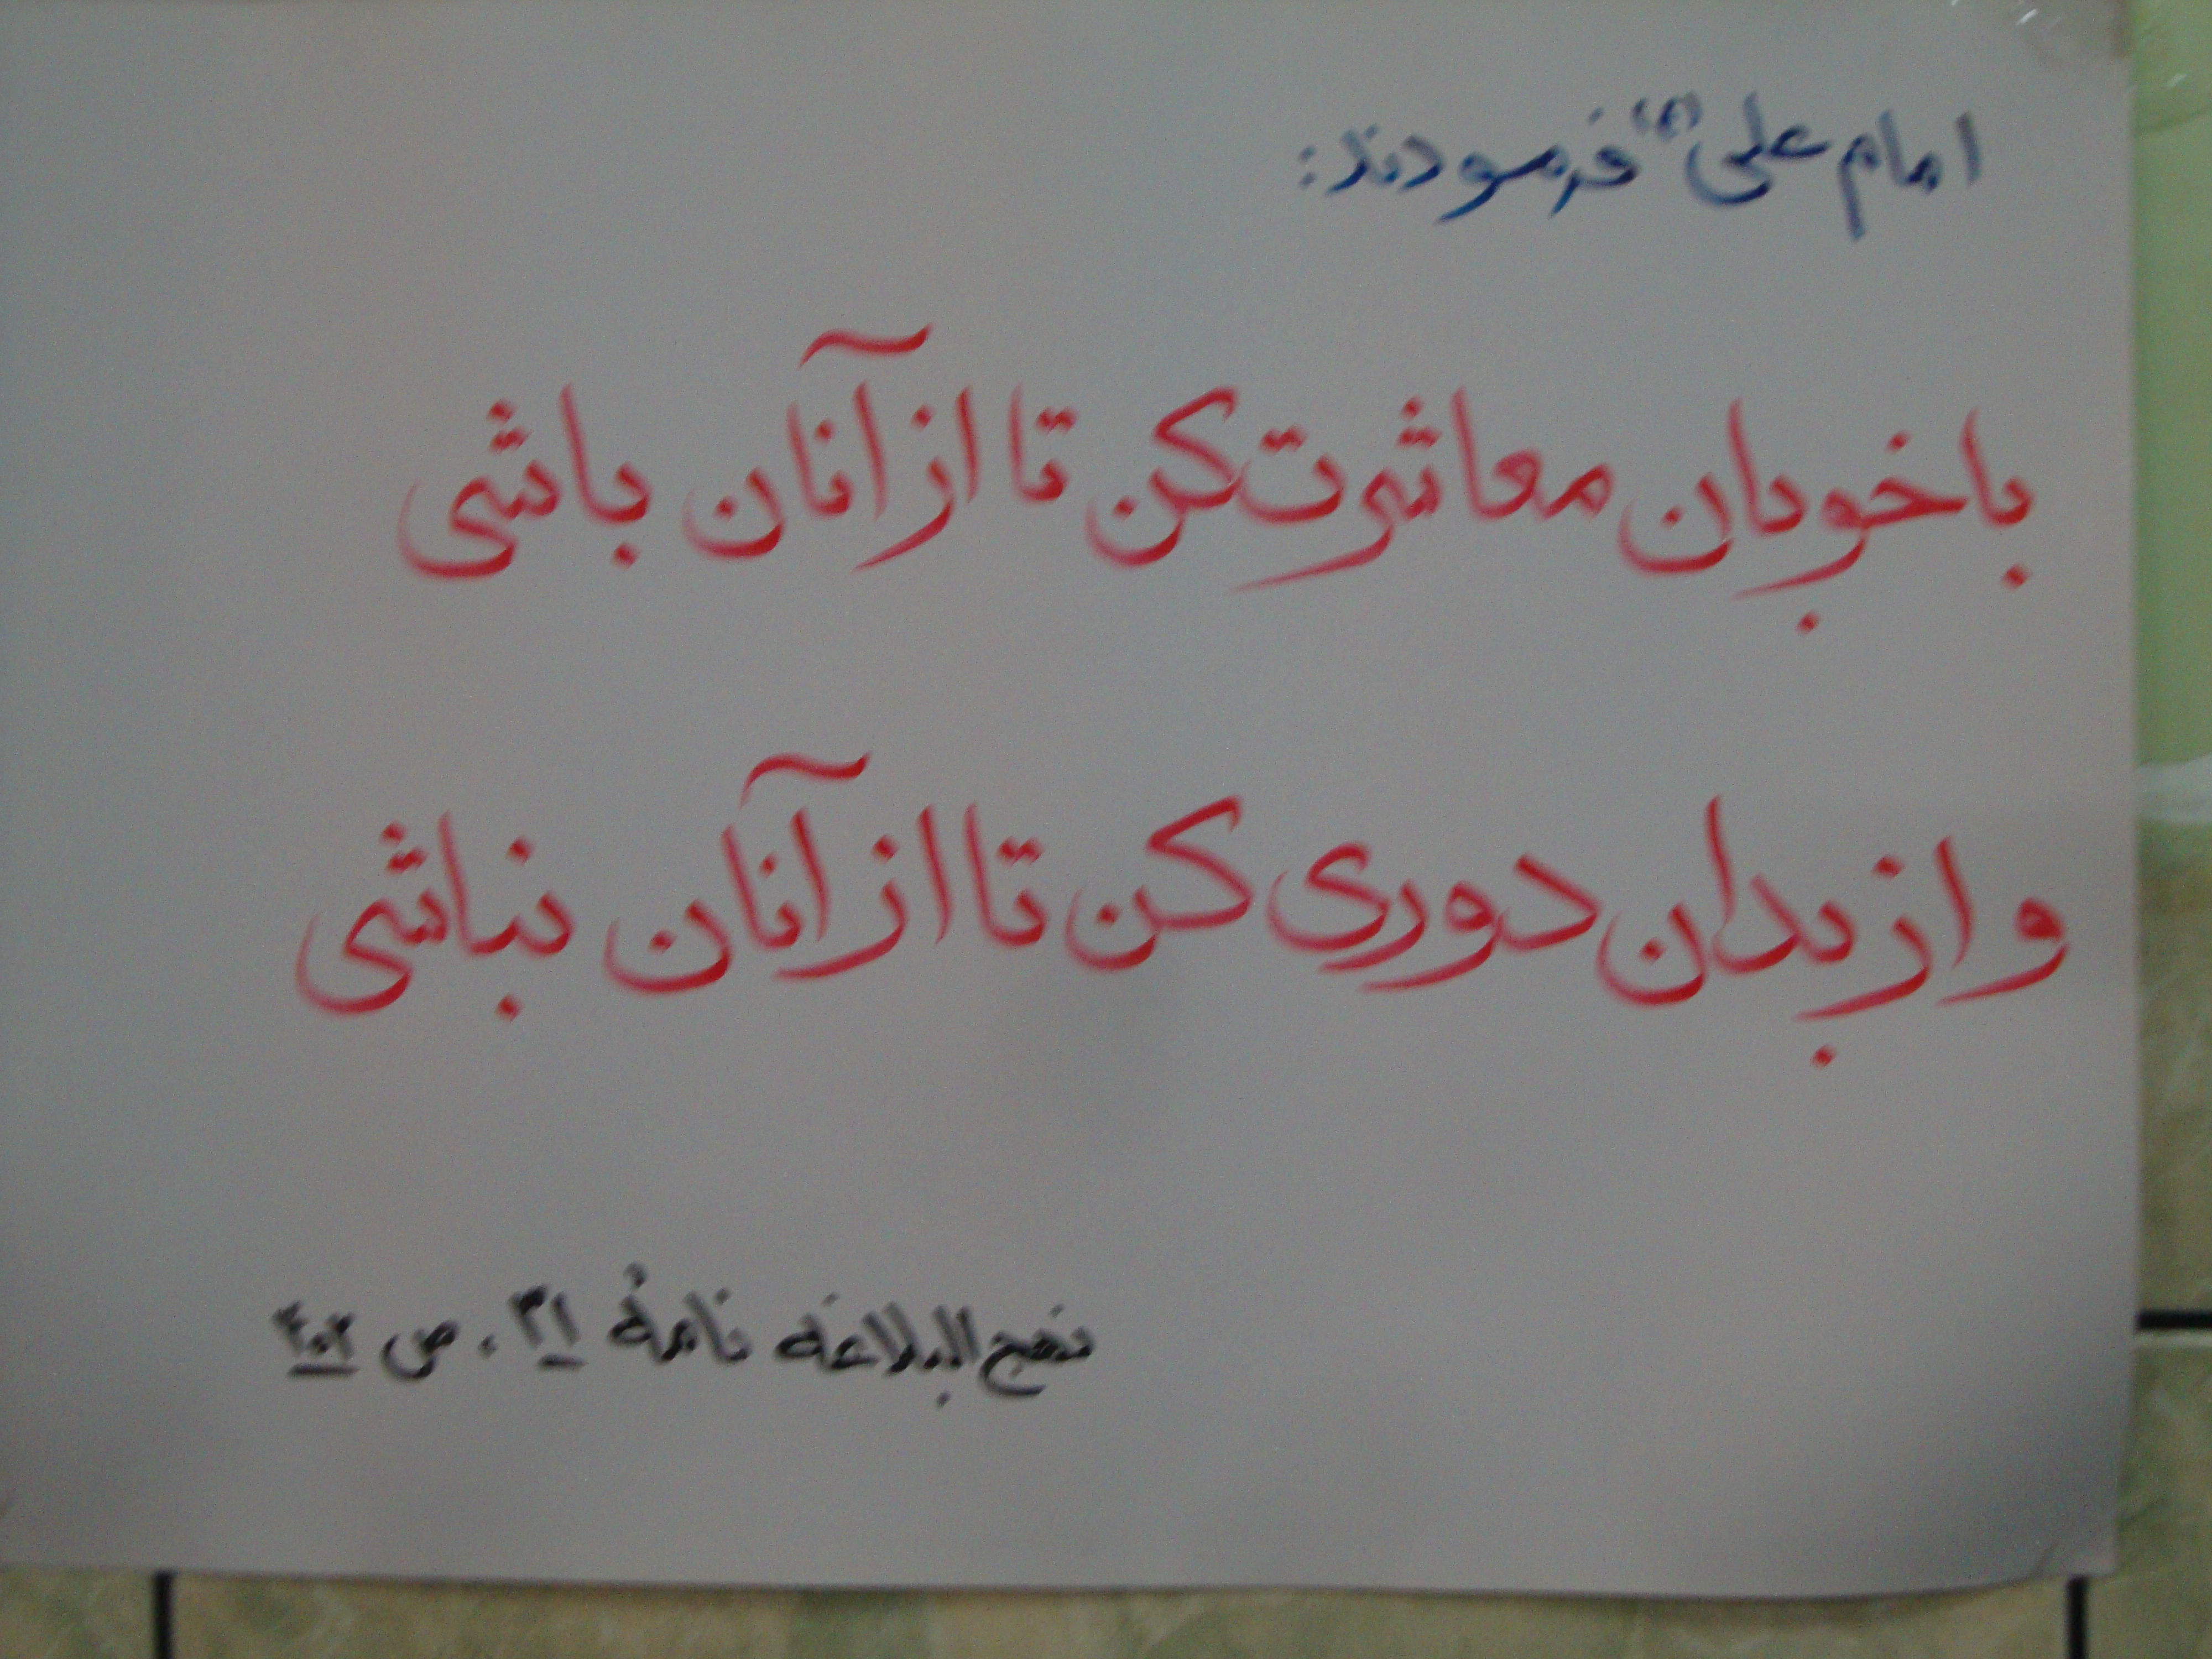 امام علی (ع) فرمودند:
با خوبان معاشرت کن تا از آنان باشی
و از بدان دوری کن تا از آنان نباشی
نهج البلاغه نامهٔ ۳۱، ص ۴۰۲